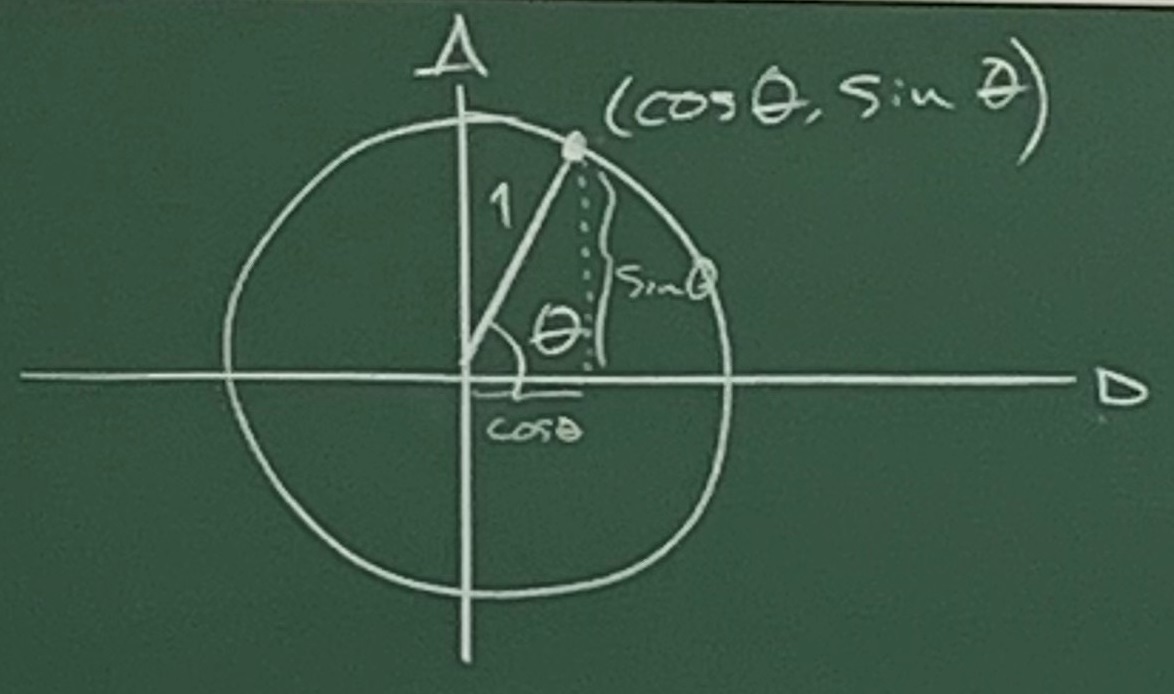 (cosθ, sin θ)
1
sinθ
θ
cosθ